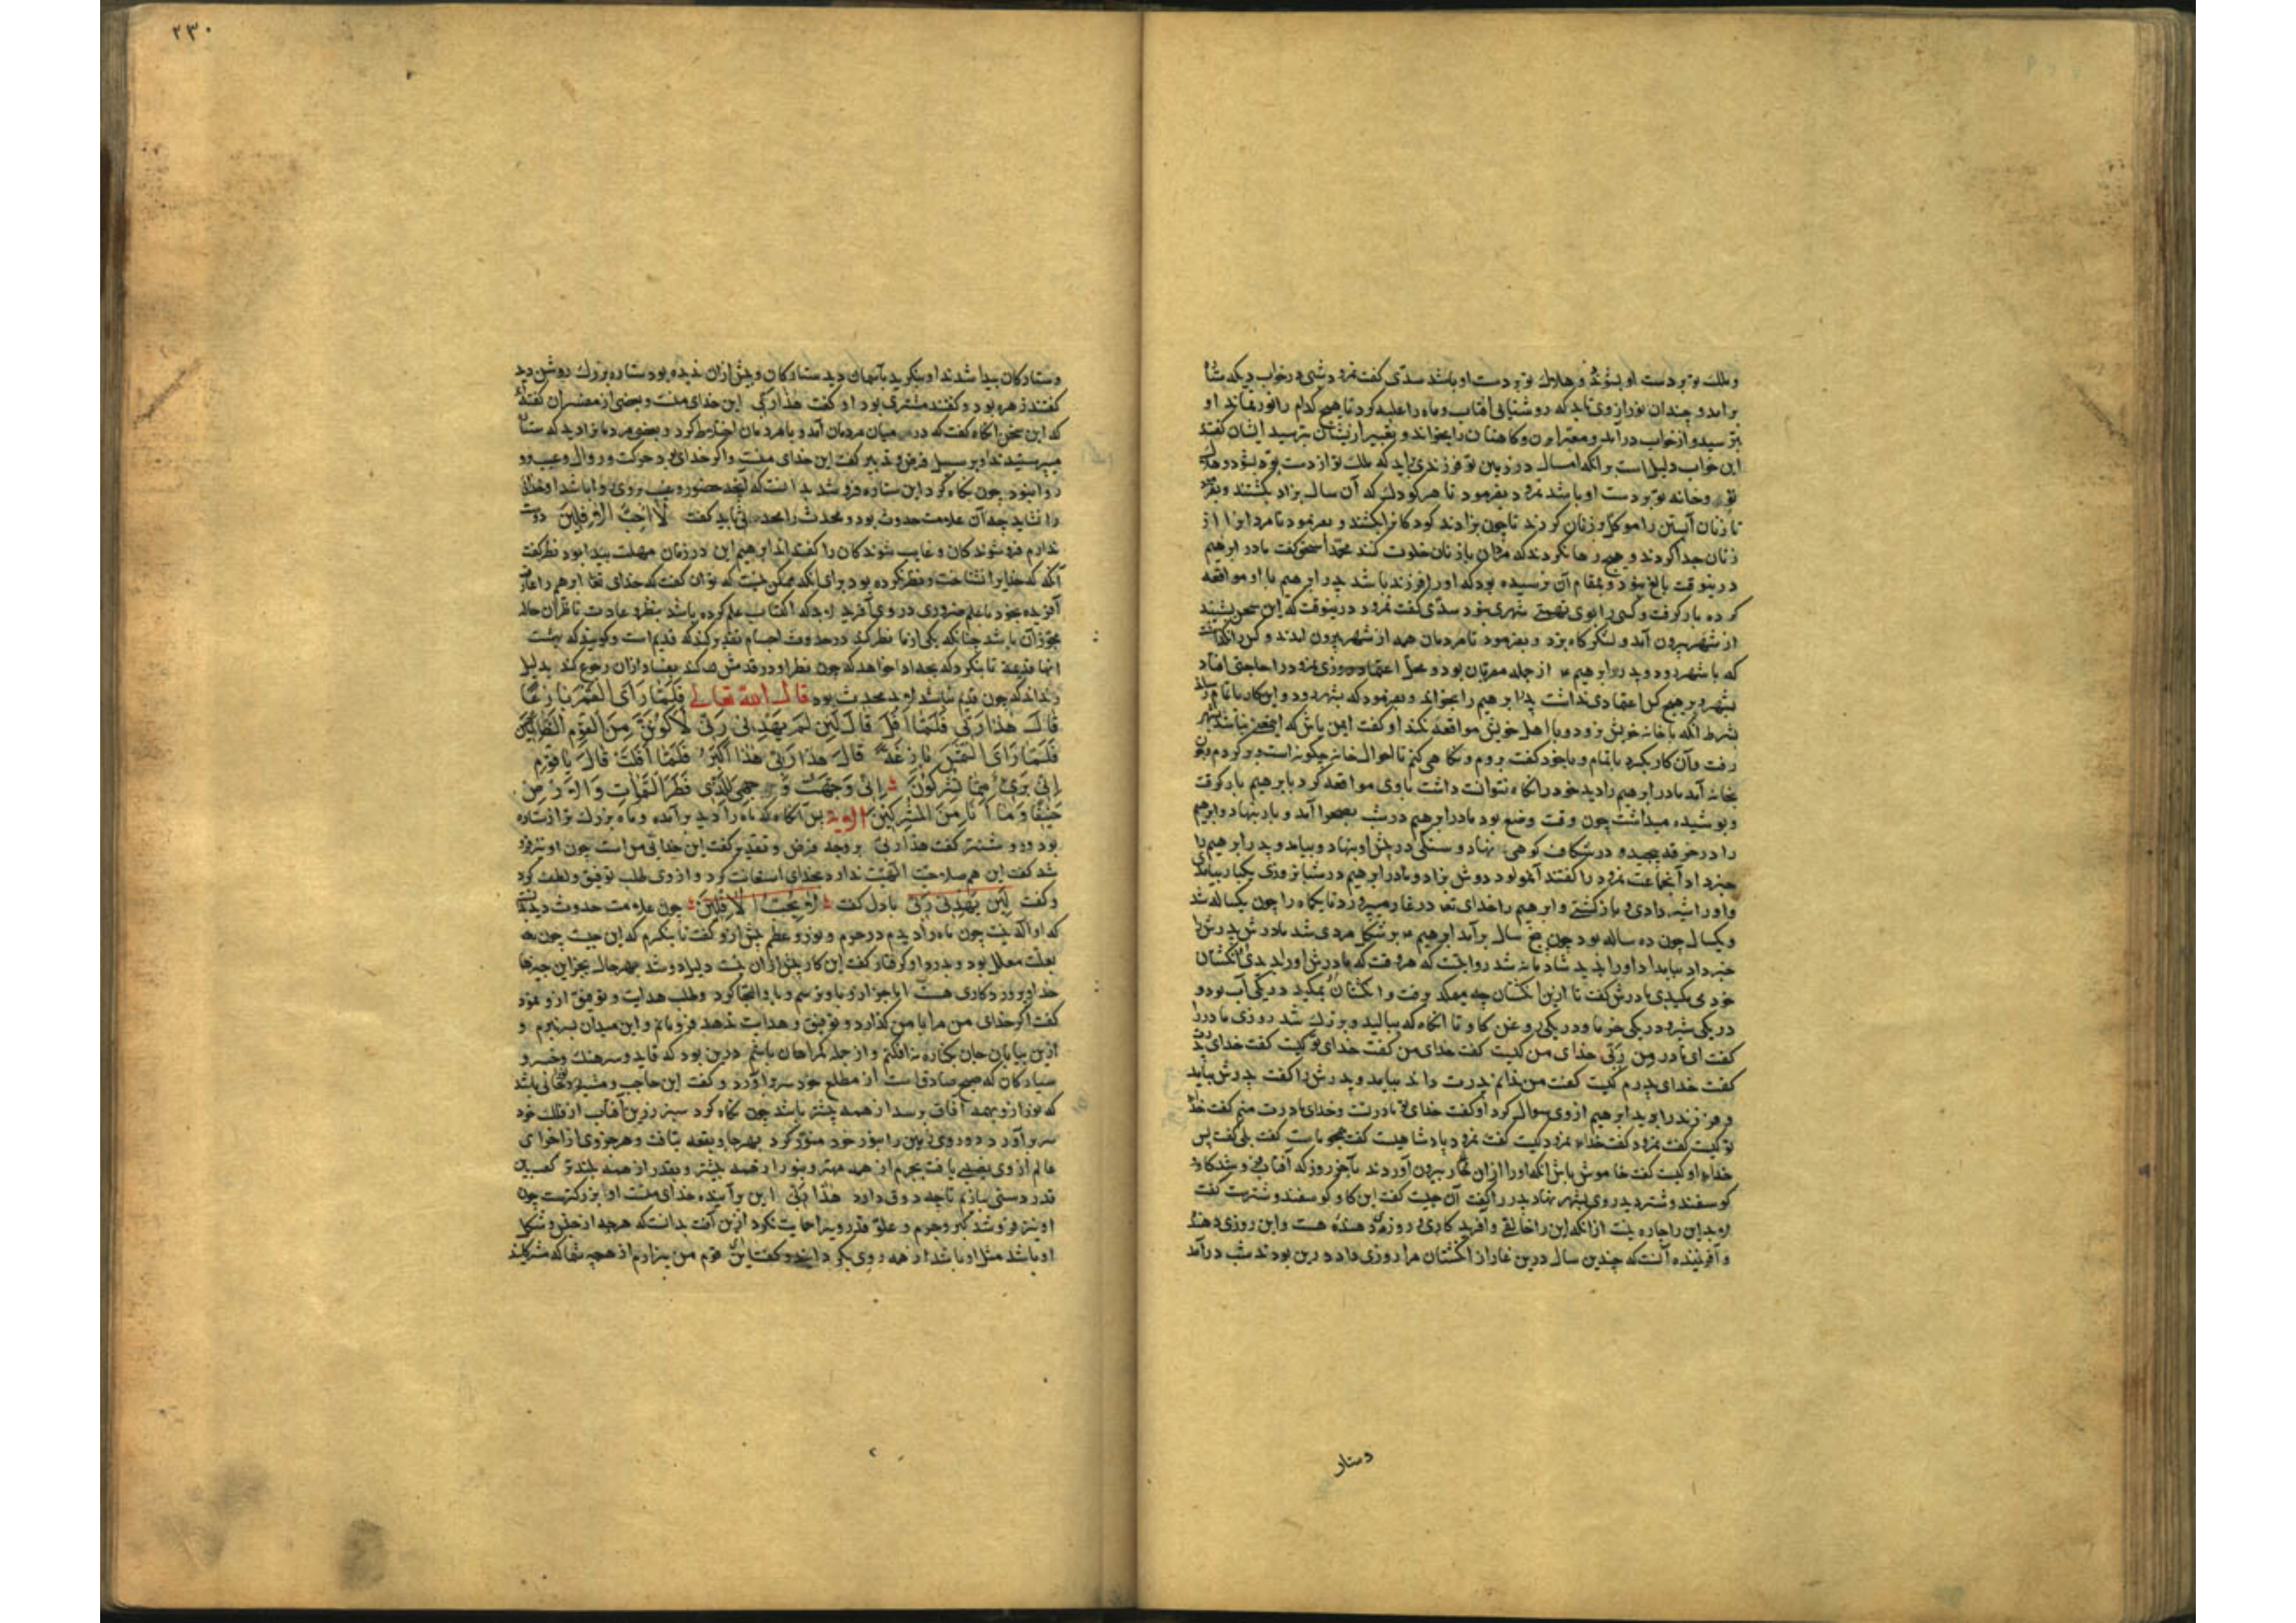 وملك تو بر دست او بشود و هلاك تو بر دست او باشد سدّی گفت نمرود شبی در خواب دید که ستاره
برآمد و چندان نور از وی بتابید که روشنائی آفتاب و ماه را غلبه کرد تا هیچ کدام را نور نماند او
بترسید و از خواب درآمد و معبران و کاهنان را بخواند و تعبیر از ایشان بپرسید ایشان گفتند
این خواب دلیل است بر آنکه امسال در زمین تو فرزندی بزاید که ملك تو از دست تو بشود و هلاك
تو و خانه تو بر دست او باشد نمرود بفرمود تا هر کودك که آن سال بزاد بکشتند و بفرمود
تا زنان آبستن را موکل زنان کردند تا چون بزادند کودکانرا بکشند و بفرمود تا مردانرا از
زنان جدا کردند و هیچ رها نکردند که مردان با زنان خلوت کنند محمد اسحق گفت مادر ابراهیم
درینوقت بالغ نبود و بمقام آن نرسیده بود که او را فرزند باشد پدر ابراهیم با او مواقعه
کرده بار گرفت و کسی را بوی تهمتی نبود سدّی گفت نمرود درینوقت که این سخن بشنید
از شهر بیرون آمد و لشکرگاه بزد و بفرمود تا مردمان همه از شهر بیرون آمدند و کس را نگذاشت
که با شهر رود و پدر ابراهیم از جمله مقربان بود و محل اعتماد روزی نمرود را حاجتی افتاد
بشهر و بر هیچ کس اعتمادی نداشت پدر ابراهیم را بخواند و بفرمود که بشهر رود و این کار با تمام رساند
بشرط آنکه با خانه خویش نرود و با اهل خویش مواقعه نکند او گفت ایمن باش که
رفت و آن کار بکرد با تمام و با خود گفت بروم و نگاهی کنم تا احوال خانه چگونه است و برگردم چون
بخانه آمد مادر ابراهیم را دید خود را نگاه نتوانست داشت با وی مواقعه کرد بابراهیم بار گرفت
و پوشیده میداشت چون وقت وضع بود مادر ابراهیم در شب بصحرا آمد و بار بنهاد و ابراهیم
را در خرقه پیچید و در شکاف کوهی بنهاد و سنگی در پیش او بنهاد و بیامد و پدر ابراهیم را
خبر داد آنجماعت نمرود را گفتند آنمولود دوش بزاد و مادر ابراهیم در شبانروزی یکبار بیامدی
و او را شیر دادی و بازگشتی و ابراهیم را خدای تعا در غار میپرورد تا یکماه را چون یکساله شد
و یکسال چون ده ساله بود چون پنج سال برآمد ابراهیم بر شکل مردی شد مادرش پدرش را
خبر داد بیامد او را بدید شادمانه شد روایتست که هر وقت که مادرش او را بدیدی انگشتان
خود می مکیدی مادرش گفت تا ازین انگشتان چه میمکد برفت و انگشتان بمکید در یکی آب بود و
در یکی شیر و در یکی خرما و در یکی روغن گاو تا آنگاه که ببالید و بزرك شد روزی مادر را
گفت ای مادر من ربّی خدای من کیست گفت خدای من گفت خدای تو کیست گفت خدای تو پدرت
گفت خدای پدرم کیست گفت من ندانم پدرت داند بیامد و پدرش را گفت پدرش بیامد
و فرزند را بدید ابراهیم از وی سوال کرد او گفت خدای تو مادرتست و خدای مادرت منم گفت خدای
تو کیست گفت نمرود گفت خدای نمرود کیست گفت نمرود پادشاهیست گفت همچو ماست گفت بلی گفت پس
خدای او کیست گفت خاموش باش آنگه او را از آن غار بیرون آوردند بآخر روز که آفتاب فرو شد گاو و
گوسفند و شتر دید روی بشهر نهاده پدر را گفت آن چیست گفت این گاو و گوسفند و شترست گفت
لابد این را چاره نیست از آنکه این را خالقی و آفریدگاری و روزی دهنده هست و این روزی دهنده
و آفریننده آنست که چندین سال درین غار از انگشتان مرا روزی داد درین بودند شب درآمد
دستار
٢٣٠
و ستارگان پیدا شدند او بنگرید بآسمان دید ستارگان و پیش از آن ندیده بود ستاره بزرك روشن دید
گفتند زهره بود و گفتند مشتری بود او گفت هذا ربّی این خدای منست و بعضی از مفسران گفته اند
که این سخن آنگاه گفت که در میان مردمان آمد و با مردمان اختلاط کرد و بعضی مردمانرا دید که ستاره
میپرستیدند او بر سبیل فرض و تقدیر گفت این خدای منست و اگر خدای بود حرکت و زوال و عیب برو
روا نبود چون نگاه کرد این ستاره فرو شد بدانست که آنچه حضور و غیبت بر وی روا باشد او خدائی
را نشاید چه آن علامت حدوث بود و محدث را محدثی باید گفت لا احبّ الآفلین دوست
ندارم فروشوندگان و غایب شوندگان را گفتند ابراهیم این در زمان مهلت بیدا بود نظر گفت
آنگه که خدایرا نشناخت و نظر نکرده بود برای آنکه ممکن نیست که توان گفت که خدای تعا ابراهیم را عارف
آفریده بخود با علم ضروری در وی آفرید لابد که اکتساب علم کرده باشد بنظر و عادت تا قرآن حاله
مجوز آن باشد چنانکه یکی از ما نظر کند در حدوث اجسام تقدیر کند که قدیم است و گویند که نیست
انها قدیمة تا بنگرد که بچه ادا خواهد که چون نظر او در قدمش کند بفساد از آن رجوع کند بدلیل
و بداند که چون قدیم نباشد لابد محدث بود قال الله تعالی فَلَمَّا رَأَى الْقَمَرَ بَازِغًا
قَالَ هٰذَا رَبِّي فَلَمَّا أَفَلَ قَالَ لَئِنْ لَمْ يَهْدِنِي رَبِّي لَأَكُونَنَّ مِنَ الْقَوْمِ الضَّالِّينَ
فَلَمَّا رَأَى الشَّمْسَ بَازِغَةً قَالَ هٰذَا رَبِّي هٰذَا أَكْبَرُ فَلَمَّا أَفَلَتْ قَالَ يَا قَوْمِ
إِنِّي بَرِيءٌ مِمَّا تُشْرِكُونَ إِنِّي وَجَّهْتُ وَجْهِيَ لِلَّذِي فَطَرَ السَّمٰوَاتِ وَالْأَرْضَ
حَنِيفًا وَمَا أَنَا مِنَ الْمُشْرِكِينَ الآیة پس آنگاه که ماه را دید برآمده و ماه بزرك تر از ستاره
بود و روشنتر گفت هذا ربّی بر وجه فرض و تقدیر گفت این خدائی من است چون او نیز فرو
شد گفت این هم صلاحیت الهیّت ندارد بخدای استعانت کرد و از وی طلب توفیق و لطف کرد
و گفت لئن یهدنی ربّی با دل گفت لا احبّ الآفلین چون علامت حدوث دید بدانست
که او اله نیست چون ماه را دیدم در جرم و نور و عظم پیش از و گفت تا بنگرم که این چیست چون به
بعلت معلل بود و بدرد او گرفتار گفت این کار پیش از آن نیست دلیل او شد بهر حال بجز این چیزها
خداوند و پروردگاری هست
گفت اگر خدای من مرا با من گذارد و توفیق و هدایت ندهد فرومانم و این میدان بسر نبرم و
ازین بیابان جان بکناره نه افکنم و از جمله گمراهان باشم درین بود که قاید و سرهنك و خسرو
سیارگان که صبح صادق است از مطلع خود سر برآورد و گفت این حاجب
که نور ازو بهمه آفاق برسد از همه پیشتر باشد چون نگاه کرد سپر زرین آفتاب از فلك خود
سر برآورد و روی زمین را بنور خود منوّر کرد بهرجا و بقعه بتافت و هر جزوی از اجزای
عالم از وی نصیبی یافت بجرم از همه مهتر و بنور از همه بیشتر و بقدر از همه بلندتر گفت بدین
قدر دستی بیازم تا چه ذوق دارد هذا ربّی این برآینده خدای منست او بزرگترست چون
او نیز فرو شد کبر و جرم و علوّ قدر و یرا حمایت نکرد ازین آفت بدانست که هرچه از جنس و شکل
او باشد مثل او باشد از همه روی بگردانید و گفت ای قوم من بیزارم از هرچه شما که مشرکانید